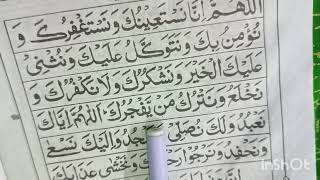 اَللّٰهُمَّ اِنَّا نَسْتَعِيْنُكَ وَنَسْتَغْفِرُكَ وَ
نُؤْمِنُ بِكَ وَنَتَوَكَّلُ عَلَيْكَ وَنُثْنِیْ
عَلَيْكَ الْخَيْرَ وَنَشْكُرُكَ وَلَا نَكْفُرُكَ وَ
نَخْلَعُ وَنَتْرُكُ مَنْ يَّفْجُرُكَ اَللّٰهُمَّ اِيَّاكَ
نَعْبُدُ وَلَكَ نُصَلِّیْ وَاِلَيْكَ نَسْعٰی
وَنَحْفِدُ وَنَرْجُوْا وَنَخْشٰی عَذَابَكَ
InShOt